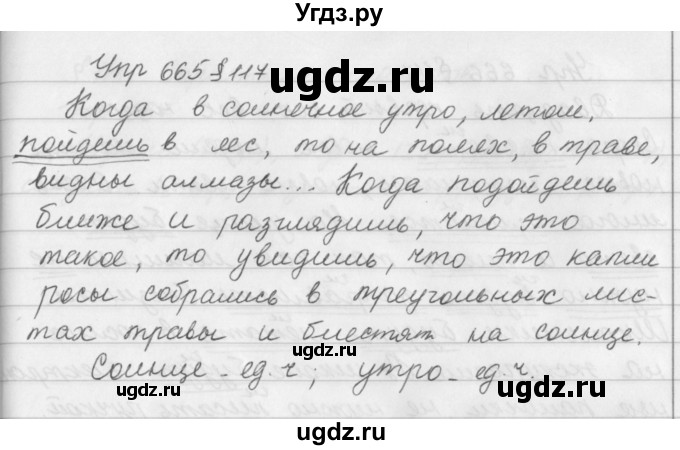 Угдз.ру
Упр 665 § 117
Когда в солнечное утро, летом,
пойдешь в лес, то на полях, в траве,
видны алмазы... Когда подойдешь
ближе и разглядишь, что это
такое, то увидишь, что это капли
росы собрались в треугольных лис-
тах травы и блестят на солнце.
Солнце - ед. ч; утро - ед. ч.
ugdz.ru
ugdz.ru
ugdz.ru
ugdz.ru
ugdz.ru
ugdz.ru
ugdz.ru
ugdz.ru
ugdz.ru
ugdz.ru